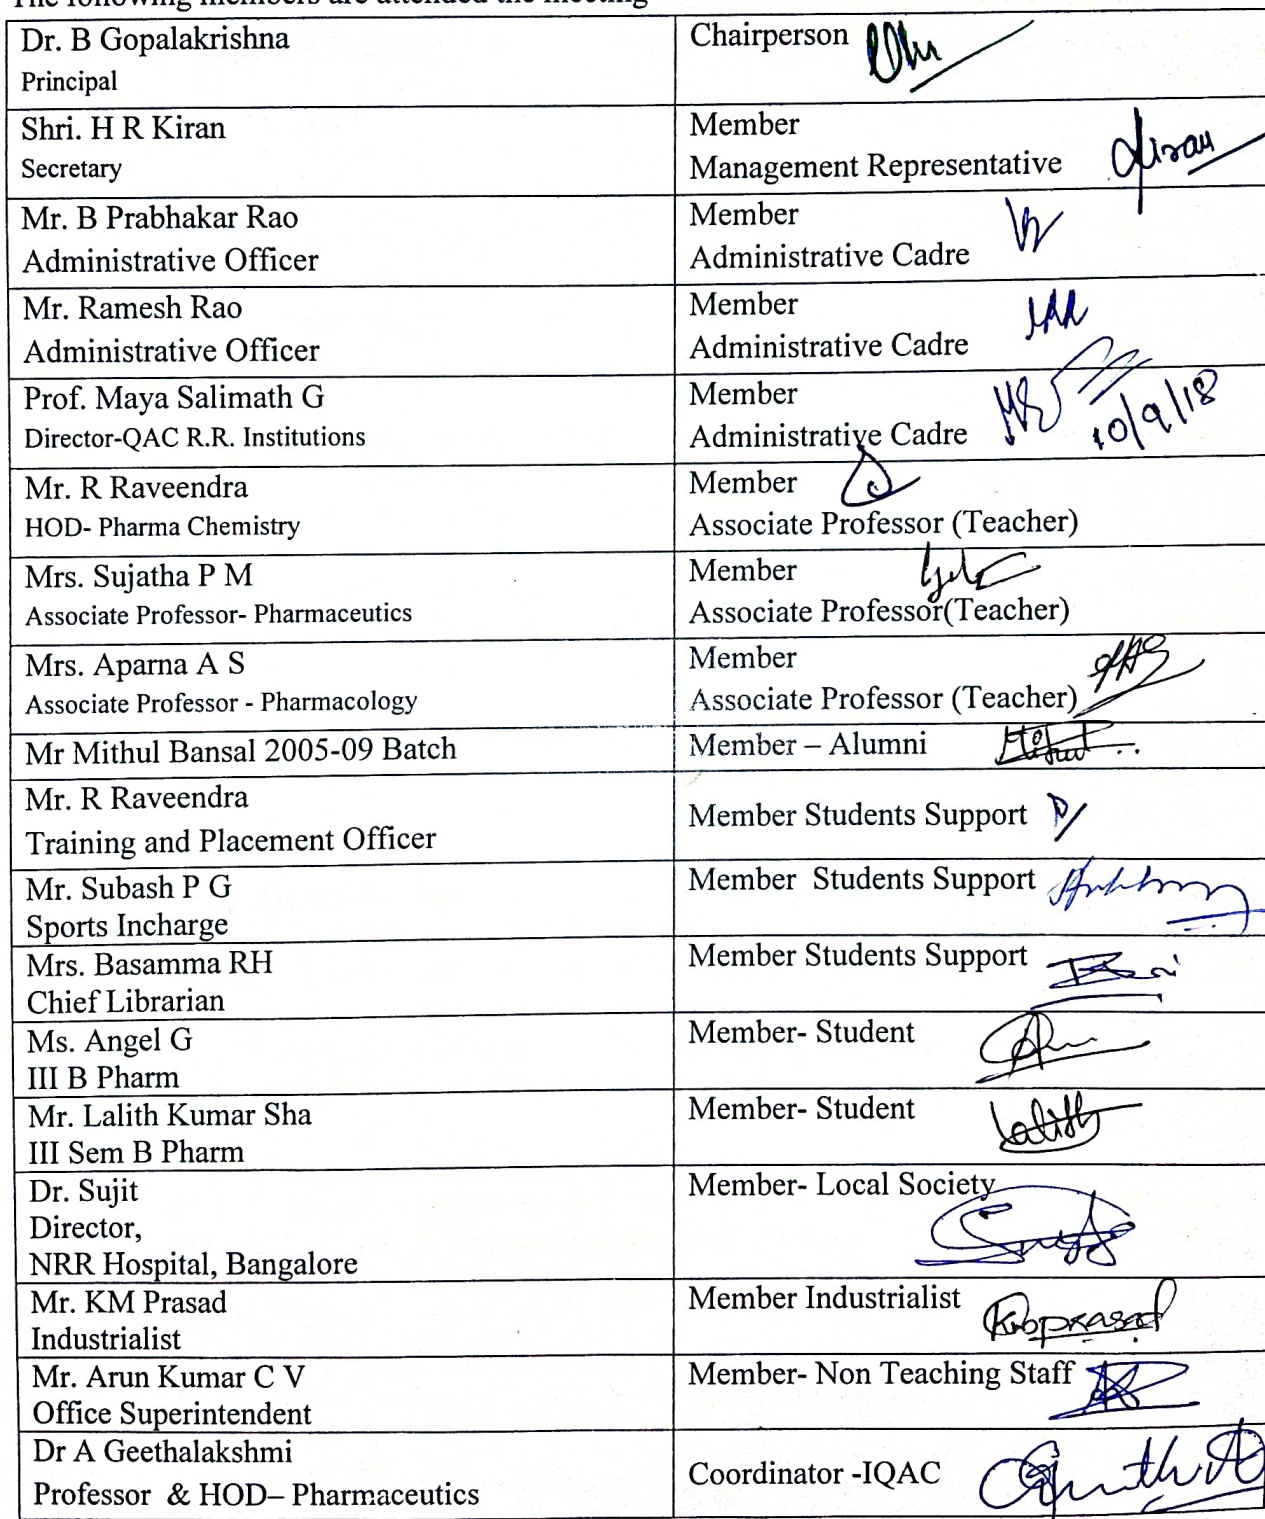 The following members are attended the meeting
Dr. B Gopalakrishna
Principal
Chairperson
Shri. H R Kiran
Secretary
Member
Management Representative
Kiran
Mr. B Prabhakar Rao
Administrative Officer
Member
Administrative Cadre
Mr. Ramesh Rao
Administrative Officer
Member
Administrative Cadre
Prof. Maya Salimath G
Director-QAC R.R. Institutions
Member
Administrative Cadre
10/9/18
Mr. R Raveendra
HOD- Pharma Chemistry
Member
Associate Professor (Teacher)
Mrs. Sujatha P M
Associate Professor- Pharmaceutics
Member
Associate Professor(Teacher)
Mrs. Aparna A S
Associate Professor - Pharmacology
Member
Associate Professor (Teacher)
Mr Mithul Bansal 2005-09 Batch
Member – Alumni
Mr. R Raveendra
Training and Placement Officer
Member Students Support
Mr. Subash P G
Sports Incharge
Member  Students Support
Mrs. Basamma RH
Chief Librarian
Member Students Support
Ms. Angel G
III B Pharm
Member- Student
Mr. Lalith Kumar Sha
III Sem B Pharm
Member- Student
Lalith
Dr. Sujit
Director,
NRR Hospital, Bangalore
Member- Local Society
Mr. KM Prasad
Industrialist
Member Industrialist
Mr. Arun Kumar C V
Office Superintendent
Member- Non Teaching Staff
Dr A Geethalakshmi
Professor  & HOD– Pharmaceutics
Coordinator -IQAC